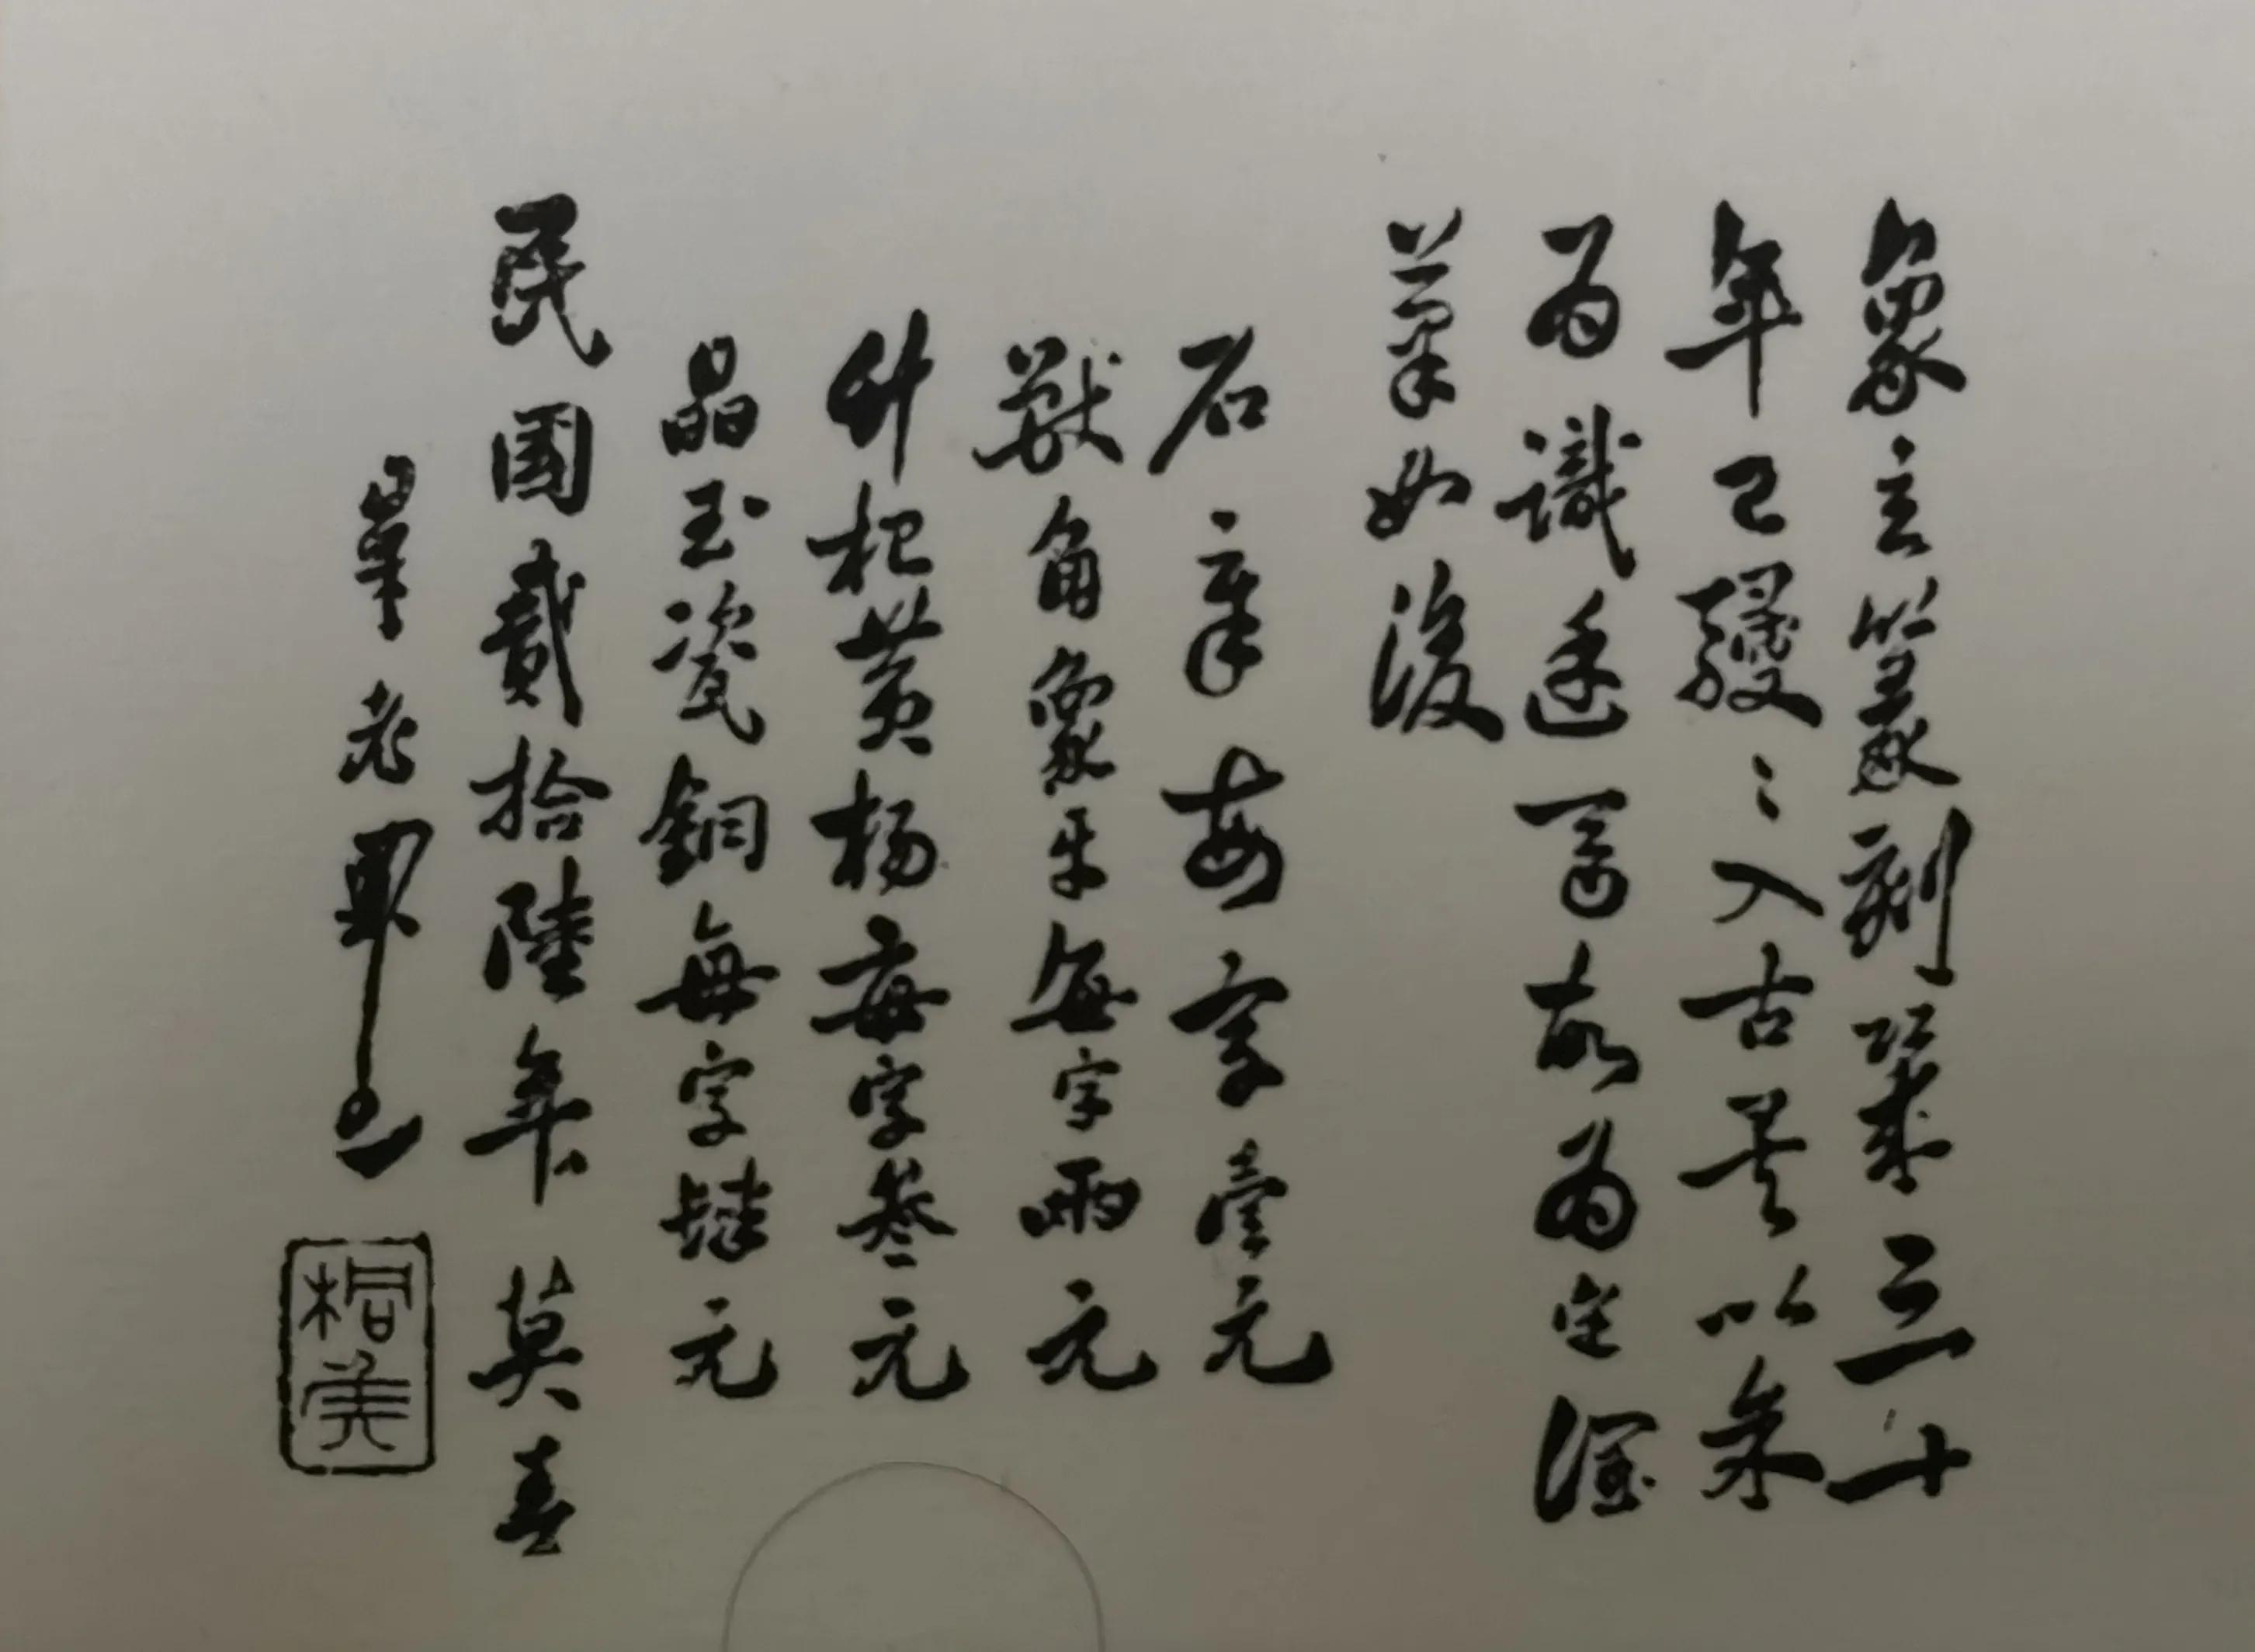 象之篆刻築基三十
年已駸〻入古是以朱
為識迋 故為定潤
筆如後
石章每字壹元
獸角象牙每字兩元
竹根黃楊每字叁元
晶玉瓷銅每字肆元
民國貳拾陸年莫春
皋老 
桐美